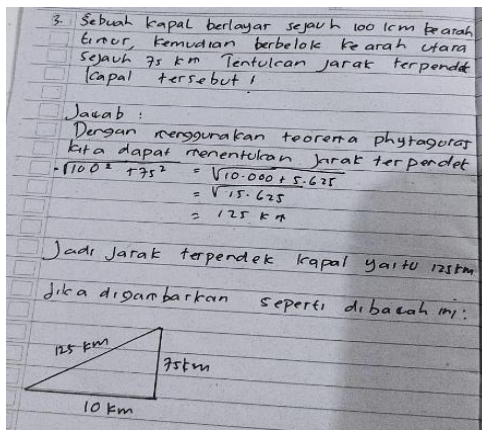 3. Sebuah kapal berlayar sejauh 100 km ke arah
timur, kemudian berbelok ke arah utara
sejauh 75 km Tentukan jarak terpendek
kapal tersebut !
Jawab :
Dengan menggunakan teorema phytagoras
kita dapat menentukan jarak terpendek
-√100² +75² = √10.000 + 5.625
= √15.625
= 125 km
Jadi Jarak terpendek kapal yaitu 125km
Jika digambarkan seperti dibawah ini:
125 km
75km
10 km